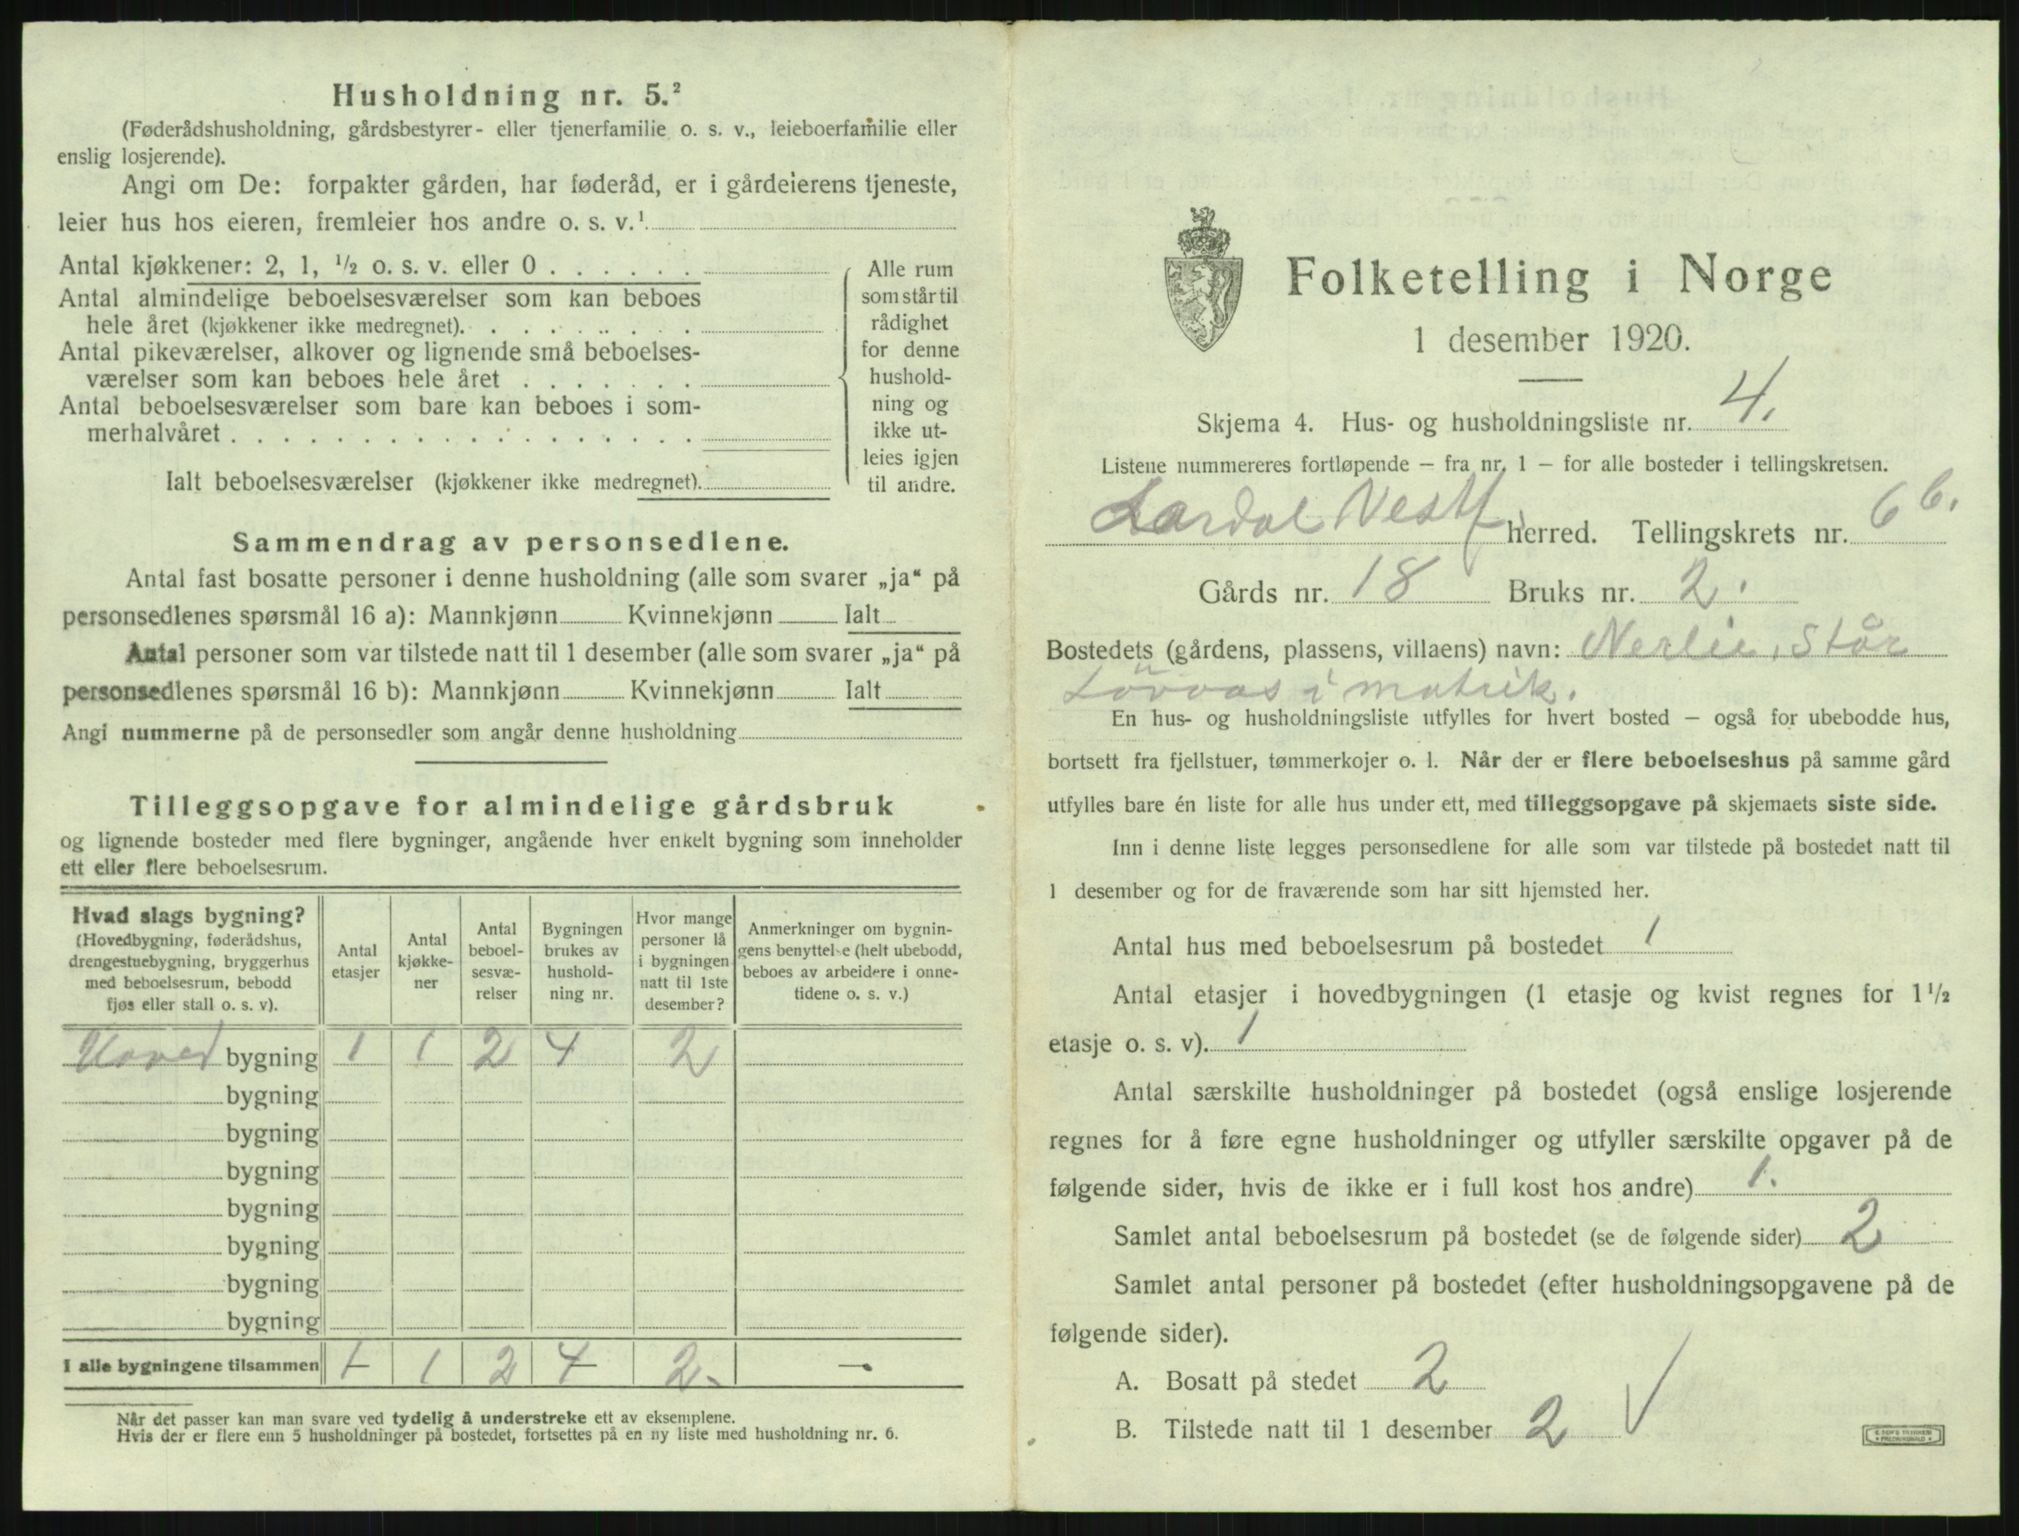 Husholdning nr. 5.²
(Føderådshusholdning, gårdsbestyrer- eller tjenerfamilie o. s. v., leieboerfamilie eller
enslig losjerende).
Angi om De: forpakter gården, har føderåd, er i gårdeierens tjeneste,
leier hus hos eieren, fremleier hos andre o. s. v.¹
Antal kjøkkener: 2, 1, ½ o. s. v. eller 0 . . . . . .
Antal almindelige beboelsesværelser som kan beboes
hele året (kjøkkener ikke medregnet). . . . . . . . .
Antal pikeværelser, alkover og lignende små beboelses-
værelser som kan beboes hele året . . . . . . .
Antal beboelsesværelser som bare kan beboes i som-
merhalvåret . . . . . . . . . . . . . . . . . .
Ialt beboelsesværelser (kjøkkener ikke medregnet).
Alle rum
som står til
rådighet
for denne
hushold-
ning og
ikke ut-
leies igjen
til andre.
Sammendrag av personsedlene.
Antal fast bosatte personer i denne husholdning (alle som svarer „ja“ på
personsedlenes spørsmål 16 a): Mannkjønn Kvinnekjønn Ialt
Antal personer som var tilstede natt til 1 desember (alle som svarer „ja“ på
personsedlenes spørsmål 16 b): Mannkjønn Kvinnekjønn Ialt
Angi nummerne på de personsedler som angår denne husholdning
Tilleggsopgave for almindelige gårdsbruk
og lignende bosteder med flere bygninger, angående hver enkelt bygning som inneholder
ett eller flere beboelsesrum.
Hvad slags bygning?
(Hovedbygning, føderådshus,
drengestuebygning, bryggerhus
med beboelsesrum, bebodd
fjøs eller stall o. s. v).
Antal
etasjer
Antal
kjøkke-
ner
Antal
beboel-
sesvæ-
relser
Bygningen
brukes av
hushold-
ning nr.
Hvor mange
personer lå
i bygningen
natt til 1ste
desember?
Anmerkninger om bygnin-
gens benyttelse (helt ubebodd,
beboes av arbeidere i onne-
tidene o. s. v.)
Hoved bygning 1 1 2 4 2
bygning
bygning
bygning
bygning
bygning
bygning
bygning
I alle bygningene tilsammen 1 1 2 4 2 —
Når det passer kan man svare ved tydelig å understreke ett av eksemplene.
Hvis der er flere enn 5 husholdninger på bostedet, fortsettes på en ny liste med husholdning nr. 6.
Folketelling i Norge
1 desember 1920.
Skjema 4. Hus- og husholdningsliste nr. 4.
Listene nummereres fortløpende – fra nr. 1 – for alle bosteder i tellingskretsen.
Lardal Vestf. herred. Tellingskrets nr. 6 6.
Gårds nr. 18 Bruks nr. 2.
Bostedets (gårdens, plassens, villaens) navn: Nerlie, står
Lövaas i matrik.
En hus- og husholdningsliste utfylles for hvert bosted – også for ubebodde hus,
bortsett fra fjellstuer, tømmerkojer o. l. Når der er flere beboelseshus på samme gård
utfylles bare én liste for alle hus under ett, med tilleggsopgave på skjemaets siste side.
Inn i denne liste legges personsedlene for alle som var tilstede på bostedet natt til
1 desember og for de fraværende som har sitt hjemsted her.
Antal hus med beboelsesrum på bostedet 1
Antal etasjer i hovedbygningen (1 etasje og kvist regnes for 1½
etasje o. s. v). 1
Antal særskilte husholdninger på bostedet (også enslige losjerende
regnes for å føre egne husholdninger og utfyller særskilte opgaver på de
følgende sider, hvis de ikke er i full kost hos andre) 1.
Samlet antal beboelsesrum på bostedet (se de følgende sider) 2
Samlet antal personer på bostedet (efter husholdningsopgavene på de
følgende sider).
A. Bosatt på stedet 2
B. Tilstede natt til 1 desember 2